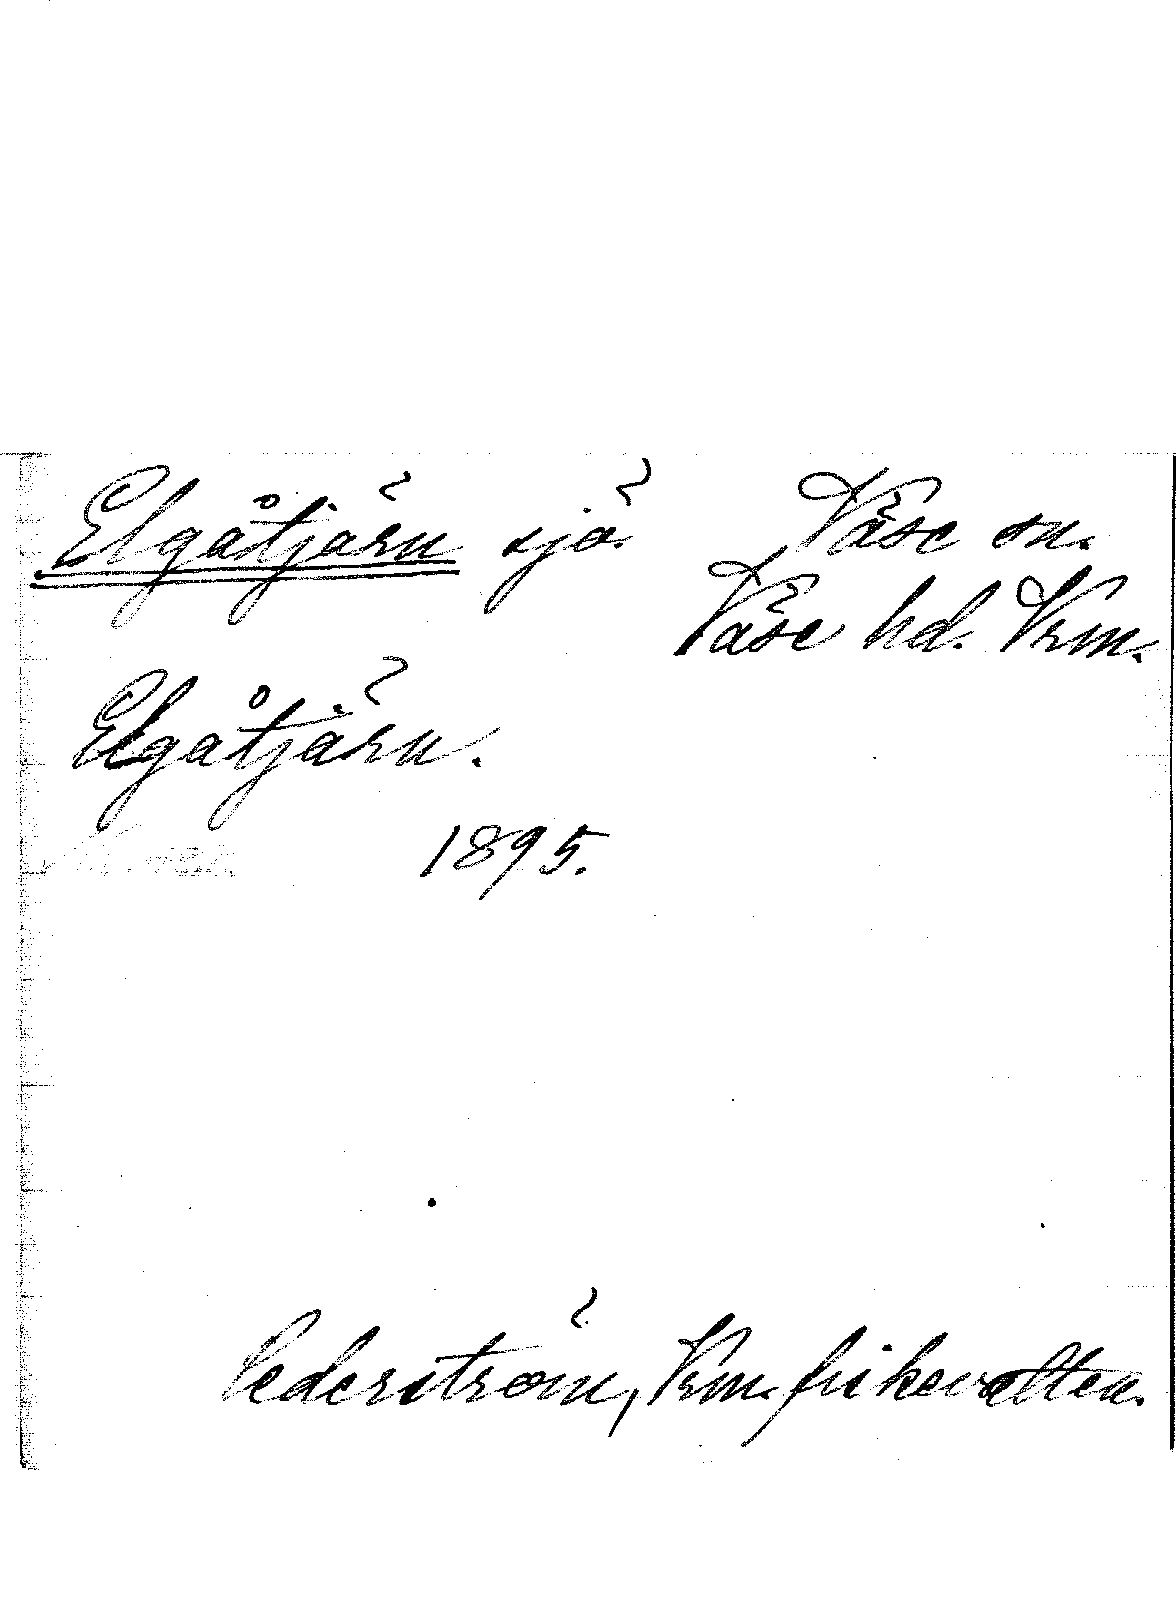 Elgåtjärn sjö. Väse sn.
Väse hd. Vrm.
Elgåtjärn.
1895.
Cederström, Vrm. fiskevatten.